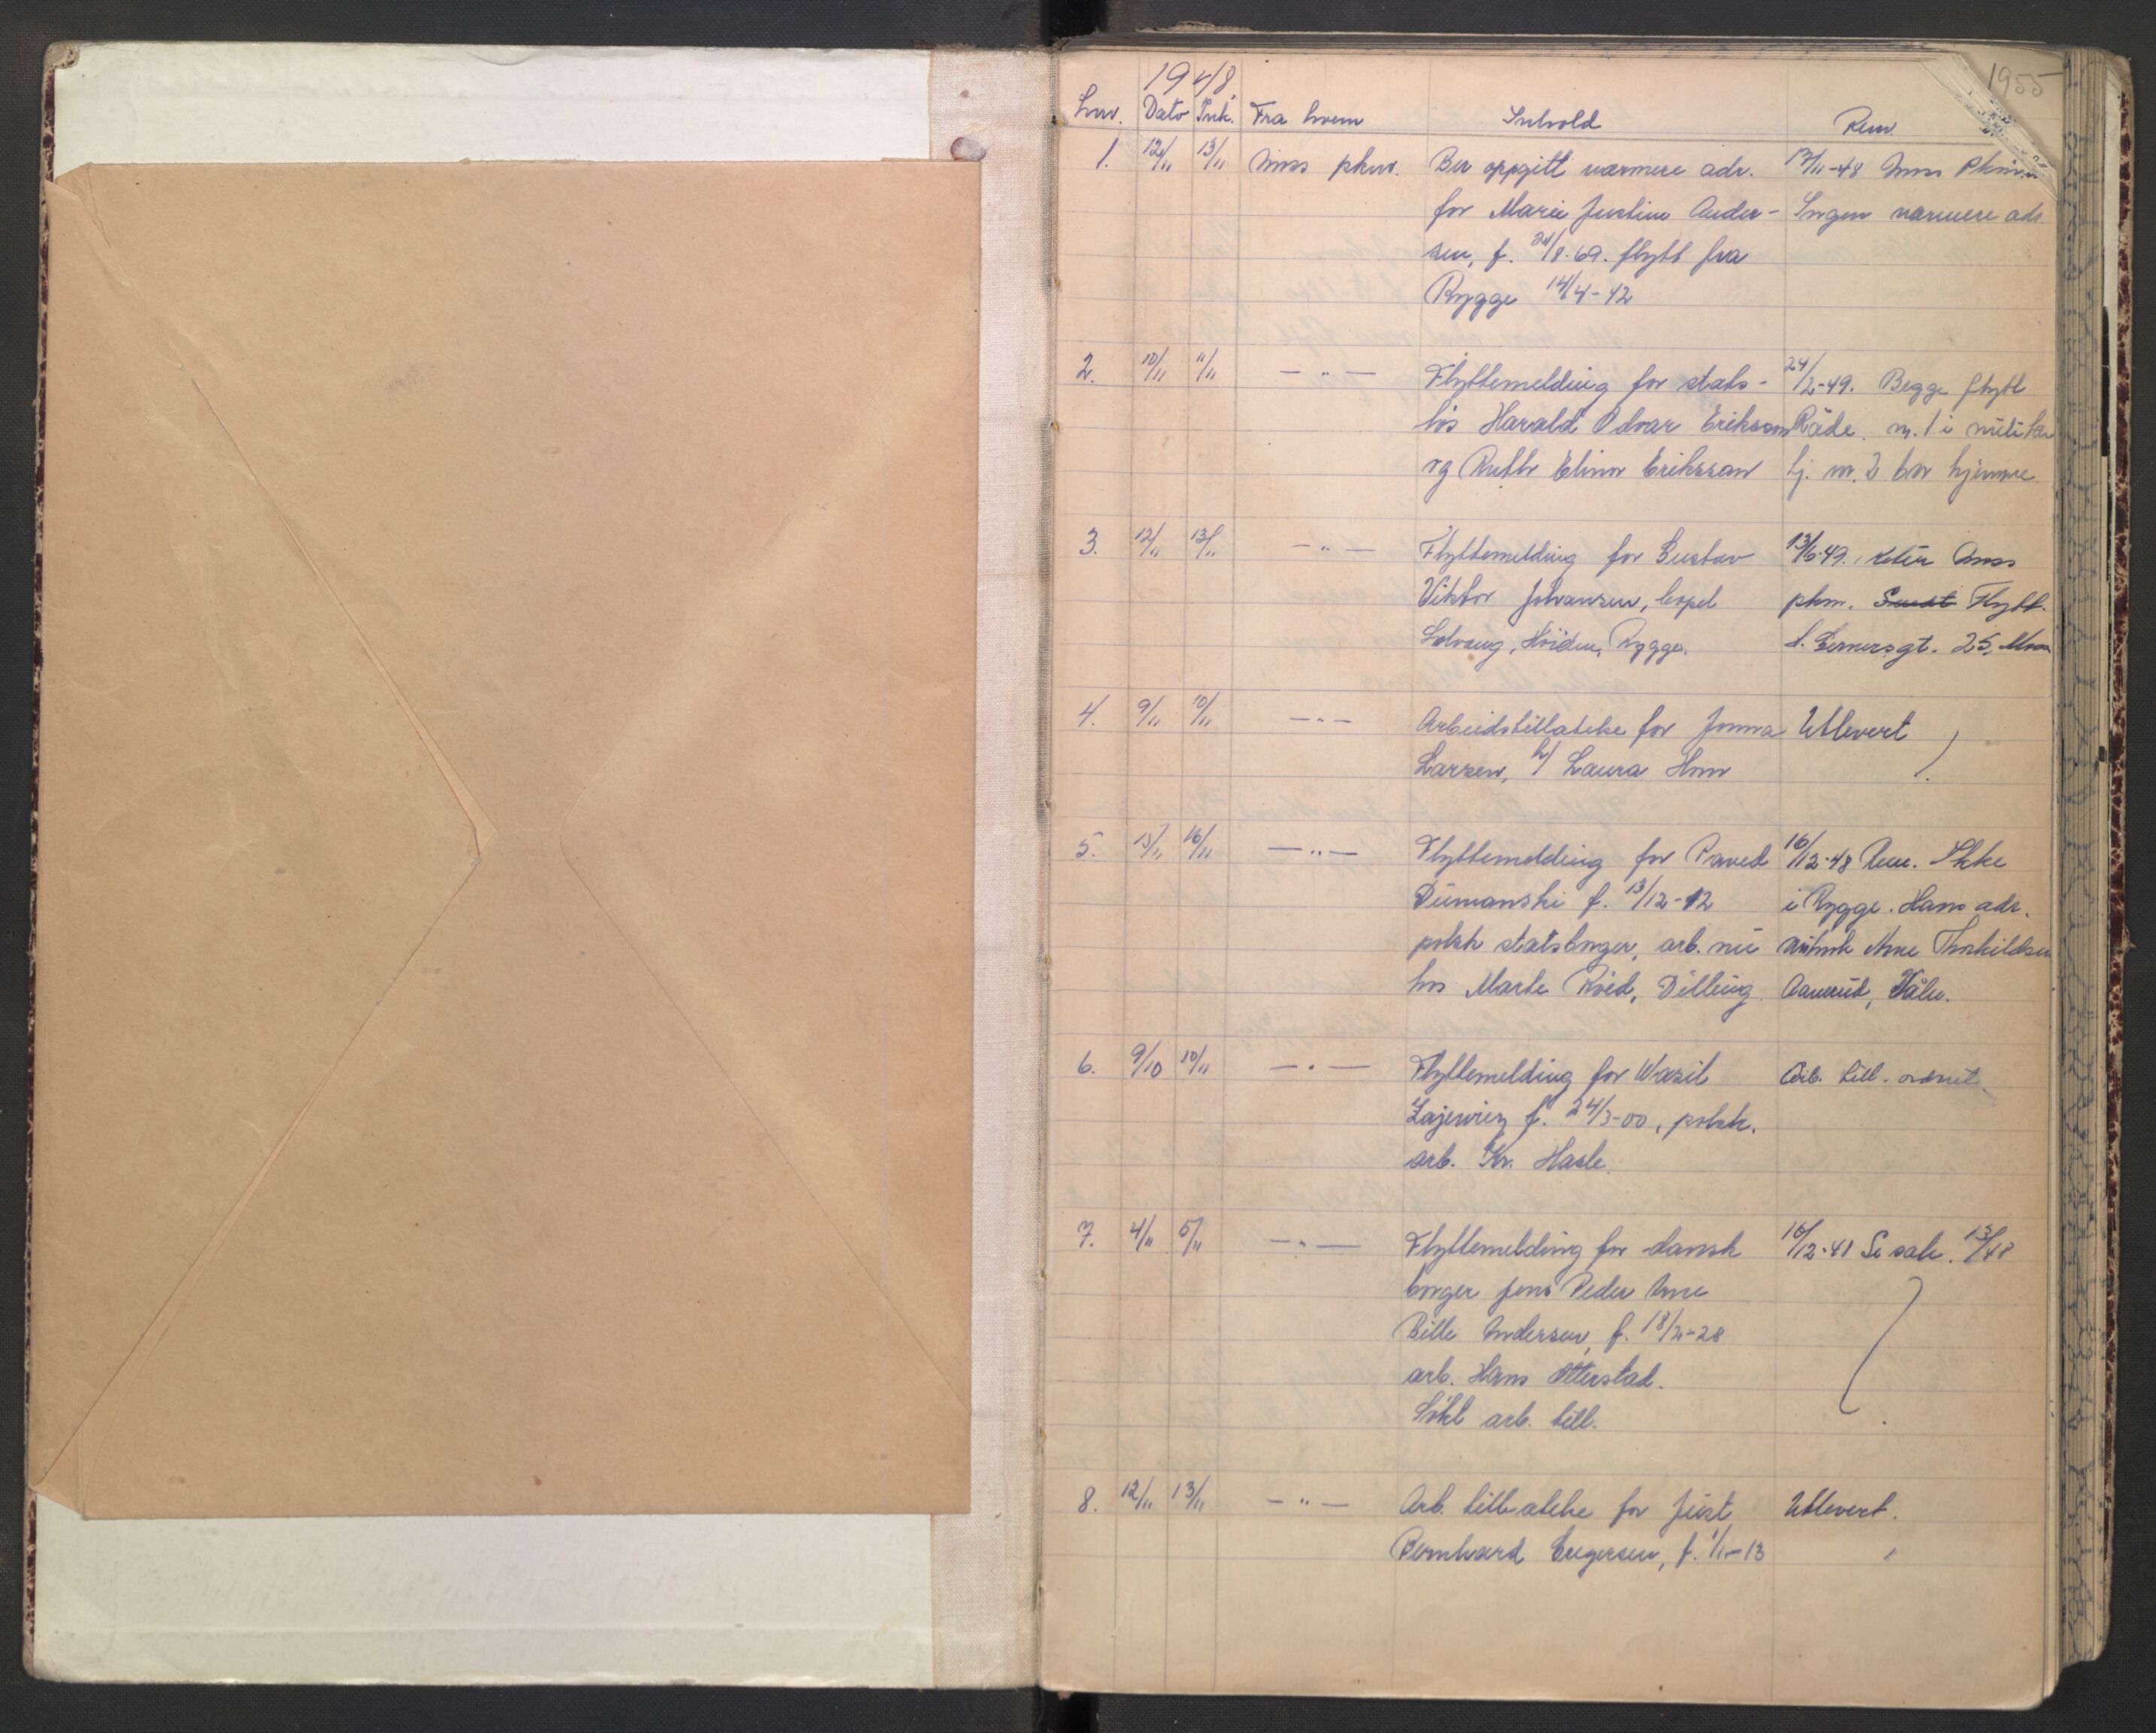 1948
1955
Lnr. Dato Ink. Fra hvem Inhold Rem.
1. 12/11 13/11 Moss pkm. Ber oppgitt nærmere adr. 17/11-48 Moss Pkm.
for Marie Justine Ander- Ingen nærmere adr.
sen, f. 24/8-69. flytt fra
Rygge 14/4-42
2. 10/11 11/11 — " — Flyttemelding for stats- 24/2-49. Begge flytt
løs Harald Odvar Eriksson Råde. nr. 1 i militær
og Ruth Elinor Eriksson tj. nr. 2 bor hjemme
3. 12/11 13/11 — " — Flyttemelding for Gustav 13/6-49. retur Moss
Viktor Johansen, bopel pkm. Sendt Flytt.
Solvang, Høiden, Rygge. t. Gernersgt. 25, Moss
4. 9/11 10/11 — " — Arbeidstillatelse for Jonna Utlevert
Larsen, h/ Laura Horn
5. 15/11 16/11 — " — Flyttemelding for Pavel 16/12-48 Rem. Ikke
Dumanski f. 13/12-12 i Rygge. Hans adr.
polsk statsborger, arb. nu Thorkildsen
hos Marte Roed, Dilling. Aamrud, Våler.
6. 9/10 10/11 — " — Flyttemelding for Wasil Arb. till. ordnet.
Zajewicz f. 24/3-00, polsk.
arb. Kr. Hasle.
7. 4/11 5/11 — " — Flyttemelding for dansk 16/12-48 Se sak. 13/48
borger Jens Peder Arne
Bille Andersen, f. 18/2-28
arb. Hans Otterstad.
Søkt arb. till.
8. 12/11 13/11 — " — Arb. tillatelse for Just Utlevert.
Bernhard Gregersen, f. 1/11-13